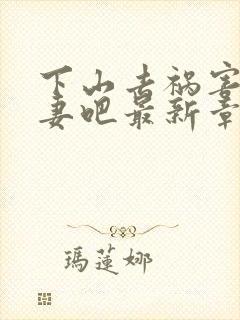 下山去祸害
妻吧最新章
瑪蓮娜